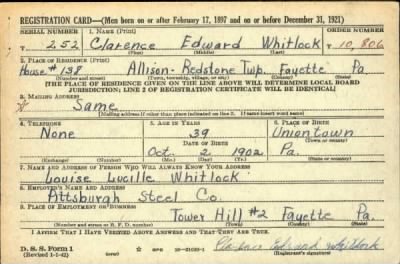 REGISTRATION CARD—(Men born on or after February 17, 1897 and on or before December 31, 1921)
SERIAL NUMBER 1. NAME (Print) ORDER NUMBER
T 252 Clarence Edward Whitlock T 10,806
(First) (Middle) (Last)
2. PLACE OF RESIDENCE (Print)
House #138 Allison- Redstone Twp. Fayette Pa
(Number and street) (Town, township, village, or city) (County) (State)
[THE PLACE OF RESIDENCE GIVEN ON THE LINE ABOVE WILL DETERMINE LOCAL BOARD
JURISDICTION; LINE 2 OF REGISTRATION CERTIFICATE WILL BE IDENTICAL]
3. MAILING ADDRESS
Same
[Mailing address if other than place indicated on line 2. If same insert word same]
4. TELEPHONE 5. AGE IN YEARS 6. PLACE OF BIRTH
None 39 Uniontown
DATE OF BIRTH (Town or county)
Oct. 2 1902 Pa.
(Exchange) (Number) (Mo.) (Day) (Yr.) (State or country)
7. NAME AND ADDRESS OF PERSON WHO WILL ALWAYS KNOW YOUR ADDRESS
Louise Lucille Whitlock
8. EMPLOYER'S NAME AND ADDRESS
Pittsburgh Steel Co.
9. PLACE OF EMPLOYMENT OR BUSINESS
Tower Hill #2 Fayette Pa.
(Number and street or R. F. D. number) (Town) (County) (State)
I AFFIRM THAT I HAVE VERIFIED ABOVE ANSWERS AND THAT THEY ARE TRUE.
D. S. S. Form 1
(Revised 1-1-42) Clarence Edward Whitlock
(Registrant's signature)